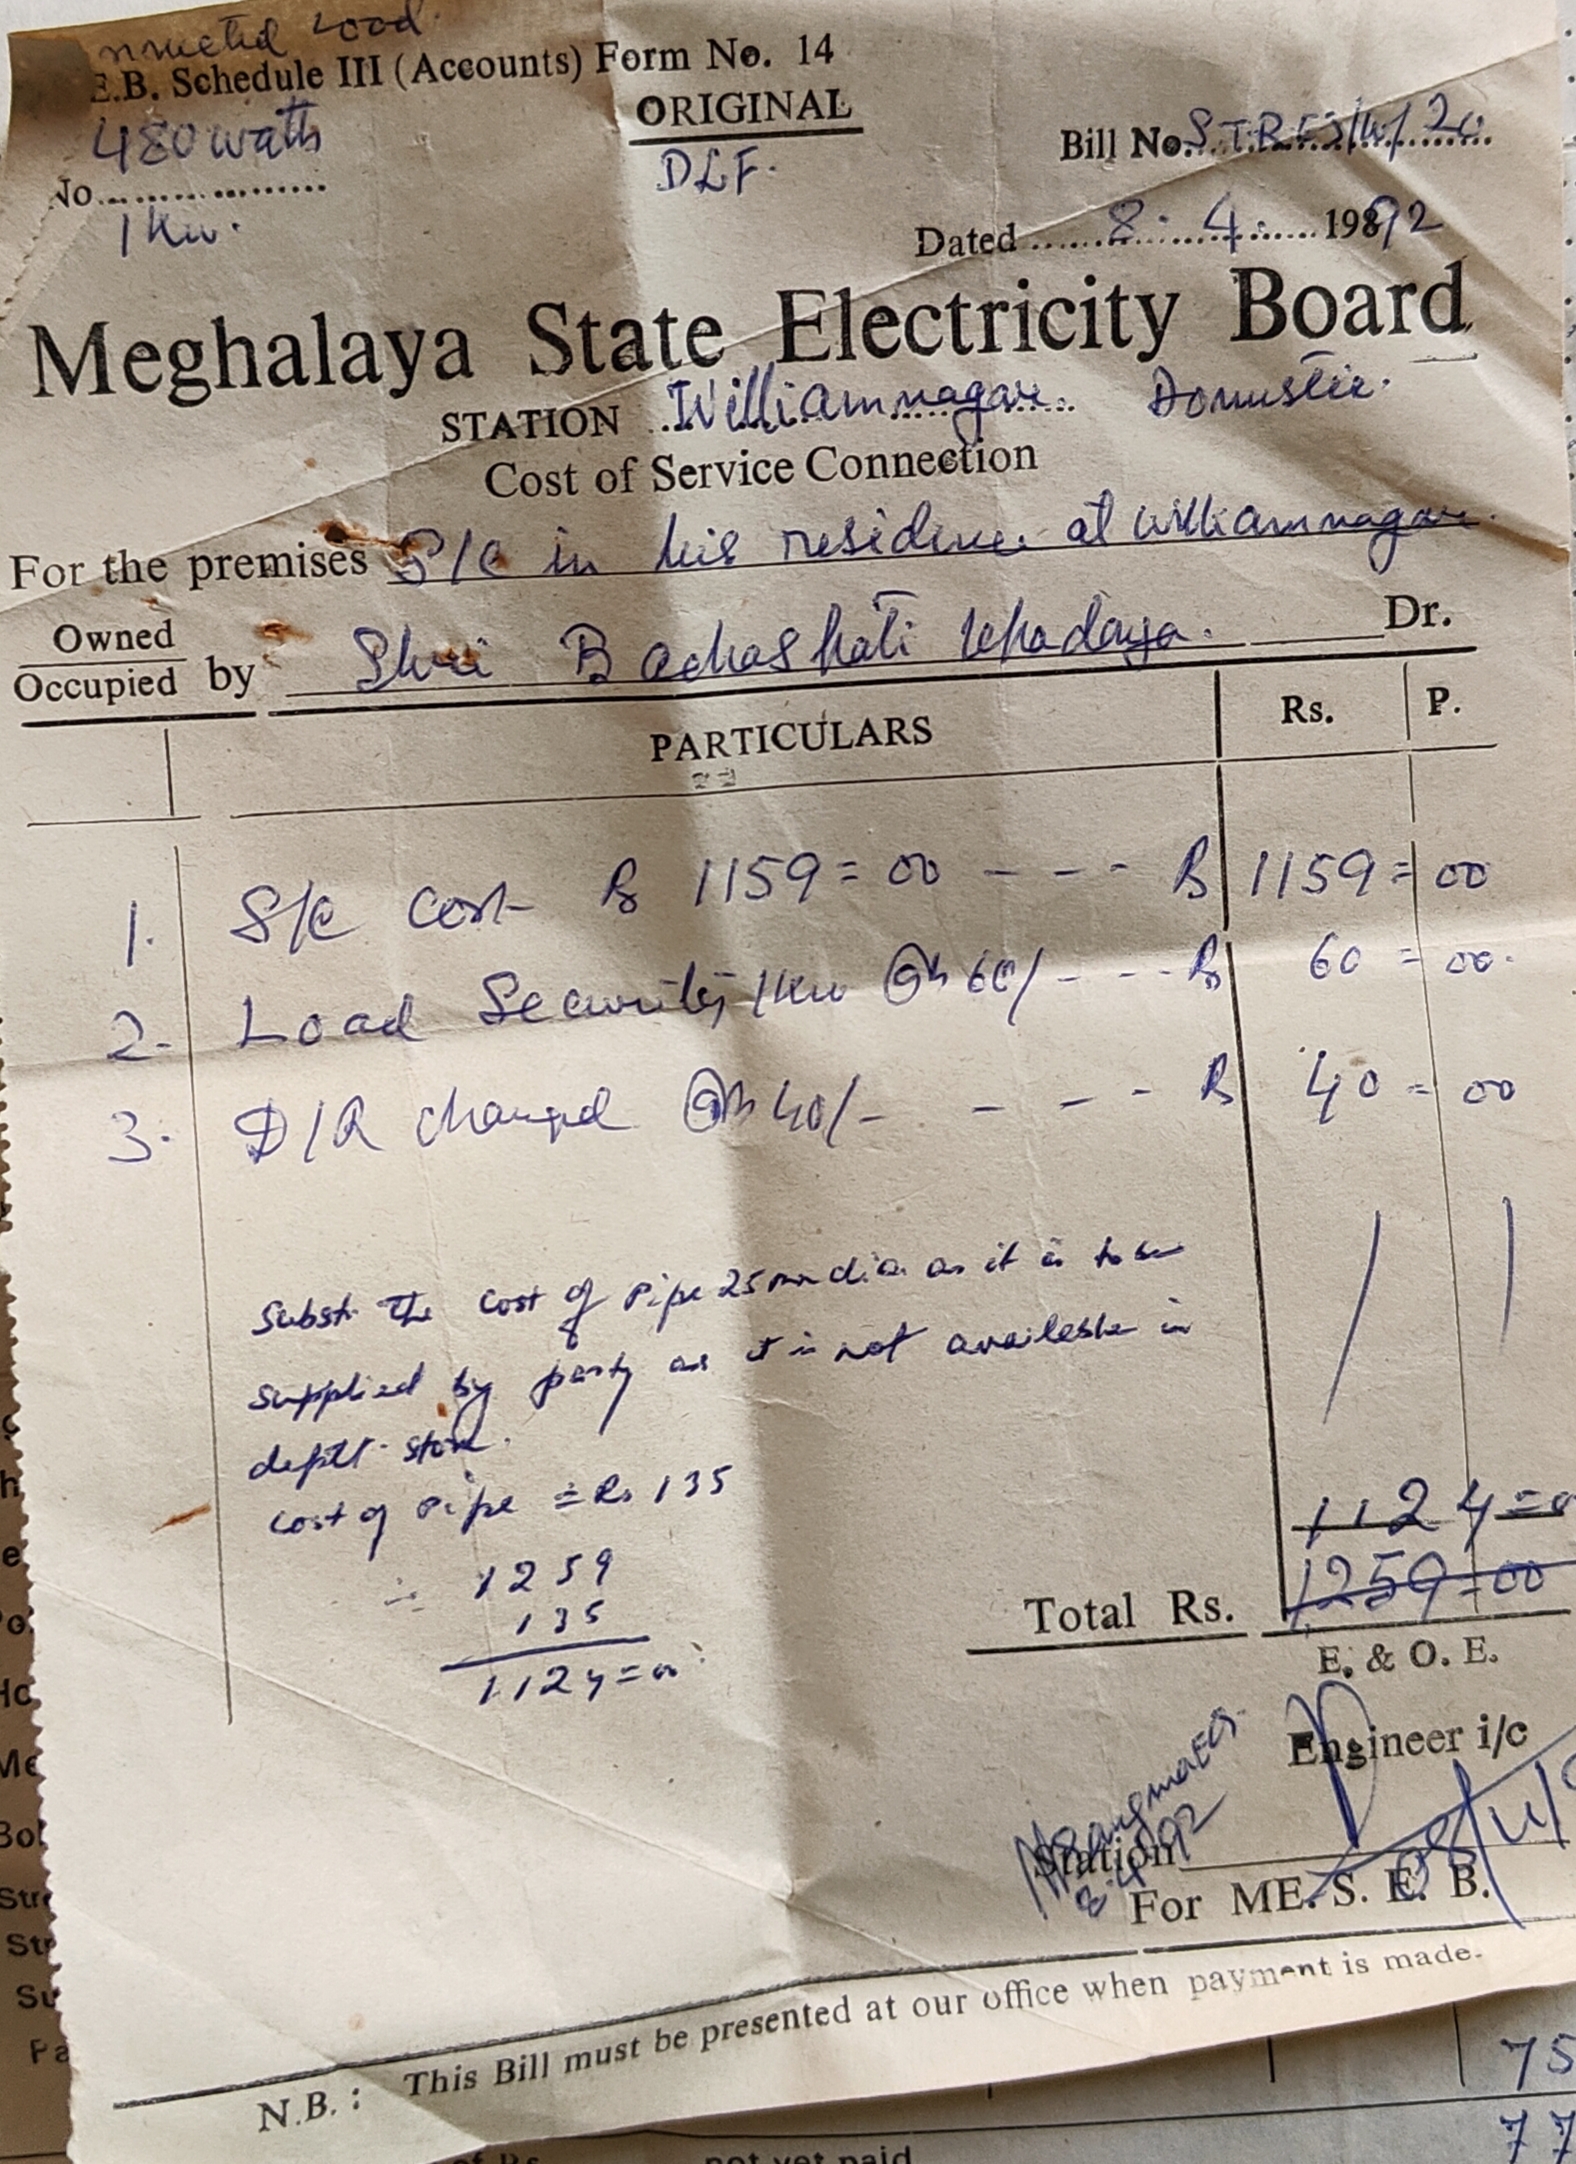 nnected Load.
E.B. Schedule III (Accounts) Form No. 14
ORIGINAL
480 watts
No.
1 Kw.
DLF.
Bill No.
Dated 8. 4. 19892
Meghalaya State Electricity Board
STATION Williamnagar. Domestic.
Cost of Service Connection
For the premises S/C in his residence at Williamnagar.
Owned
Occupied by Shri Bachaspati Upadaya. Dr.
PARTICULARS Rs. P.
1. S/C Cost Rs 1159=00 - - - Rs 1159=00
2. Load Security 1Kw @Rs 60/- - - Rs 60=00.
3. D/R charged @Rs 40/- - - - Rs 40=00
Substr. the cost of pipe 25mm dia as it is to be
supplied by party as it is not available in
deptt. store.
cost of pipe = Rs 135
1259
135
1124=00
1124=0
Total Rs. 1259=00
E. & O. E.
Engineer i/c
Station
8.4.92
For ME. S. E. B.
N.B.: This Bill must be presented at our office when payment is made.
75
77
not yet paid